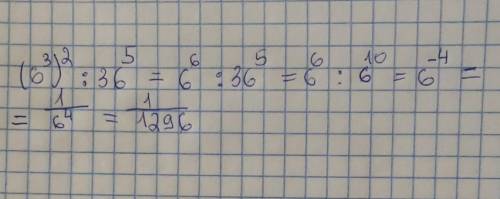 (6³)² : 36⁵ = 6⁶ : 36⁵ = 6⁶ : 6¹⁰ = 6⁻⁴ =
= 1/6⁴ = 1/1296